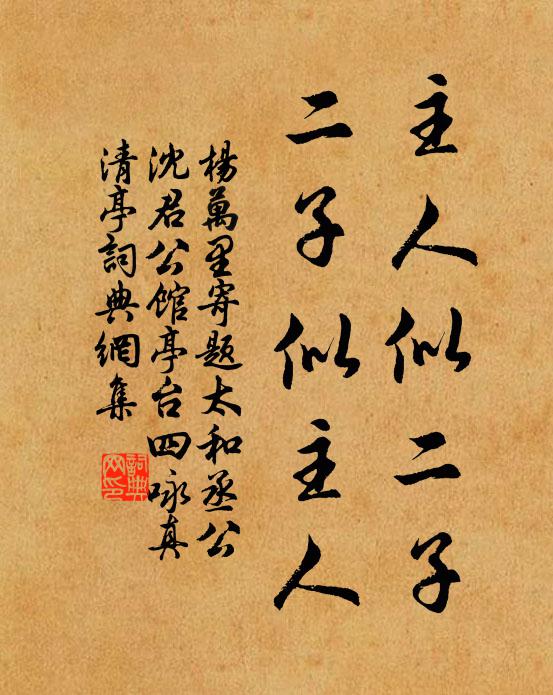 主人似二子
二子似主人
楊萬里寄題太和丞公
沈君公館亭台四咏真
清亭詞典網集
詞典网印